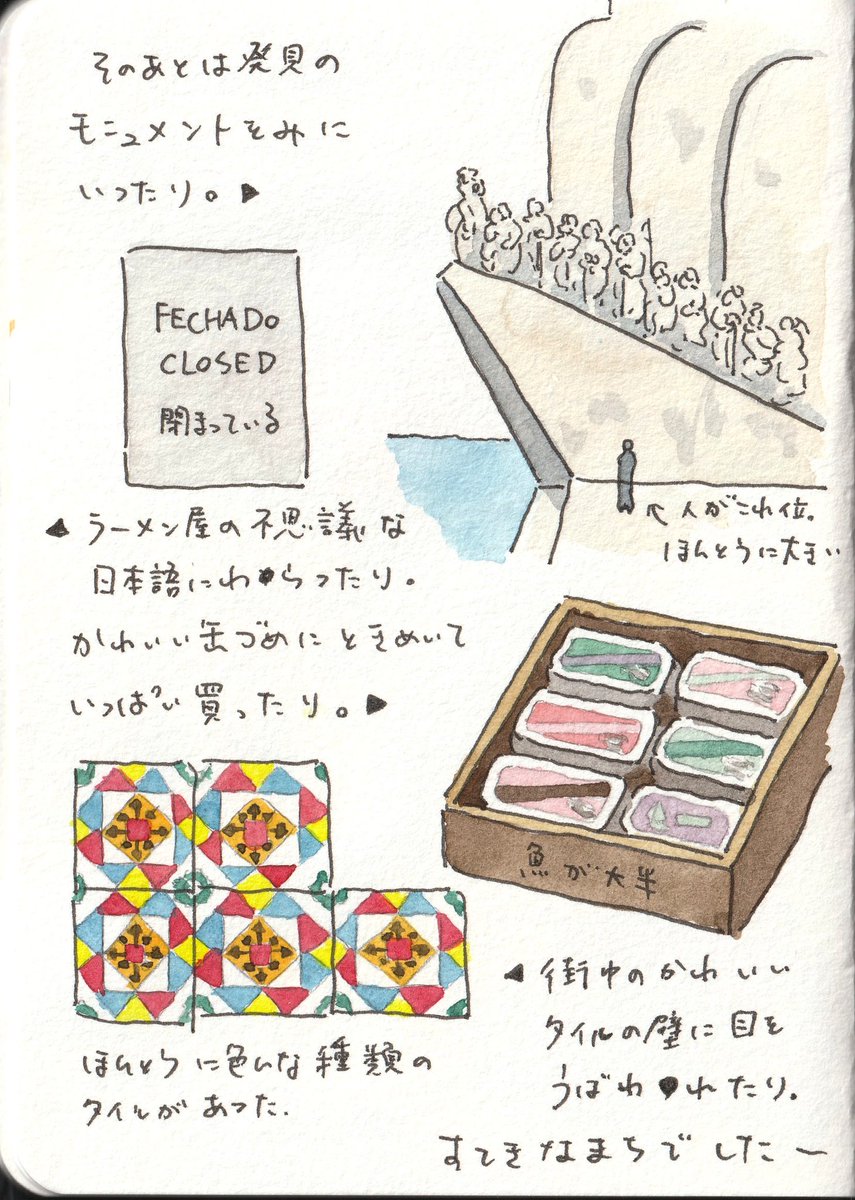 そのあとは発見の
モニュメントをみに
いったり。▶
FECHADO
CLOSED
閉まっている
↖人がこれ位。
ほんとうに大きい
◀ラーメン屋の不思議な
日本語にわらったり。
かわいい缶づめにときめいて
いっぱい買ったり。▶
魚が大半
ほんとうに色んな種類の
タイルがあった.
◀街中のかわいい
タイルの壁に目を
うばわれたり。
すてきなまちでしたー